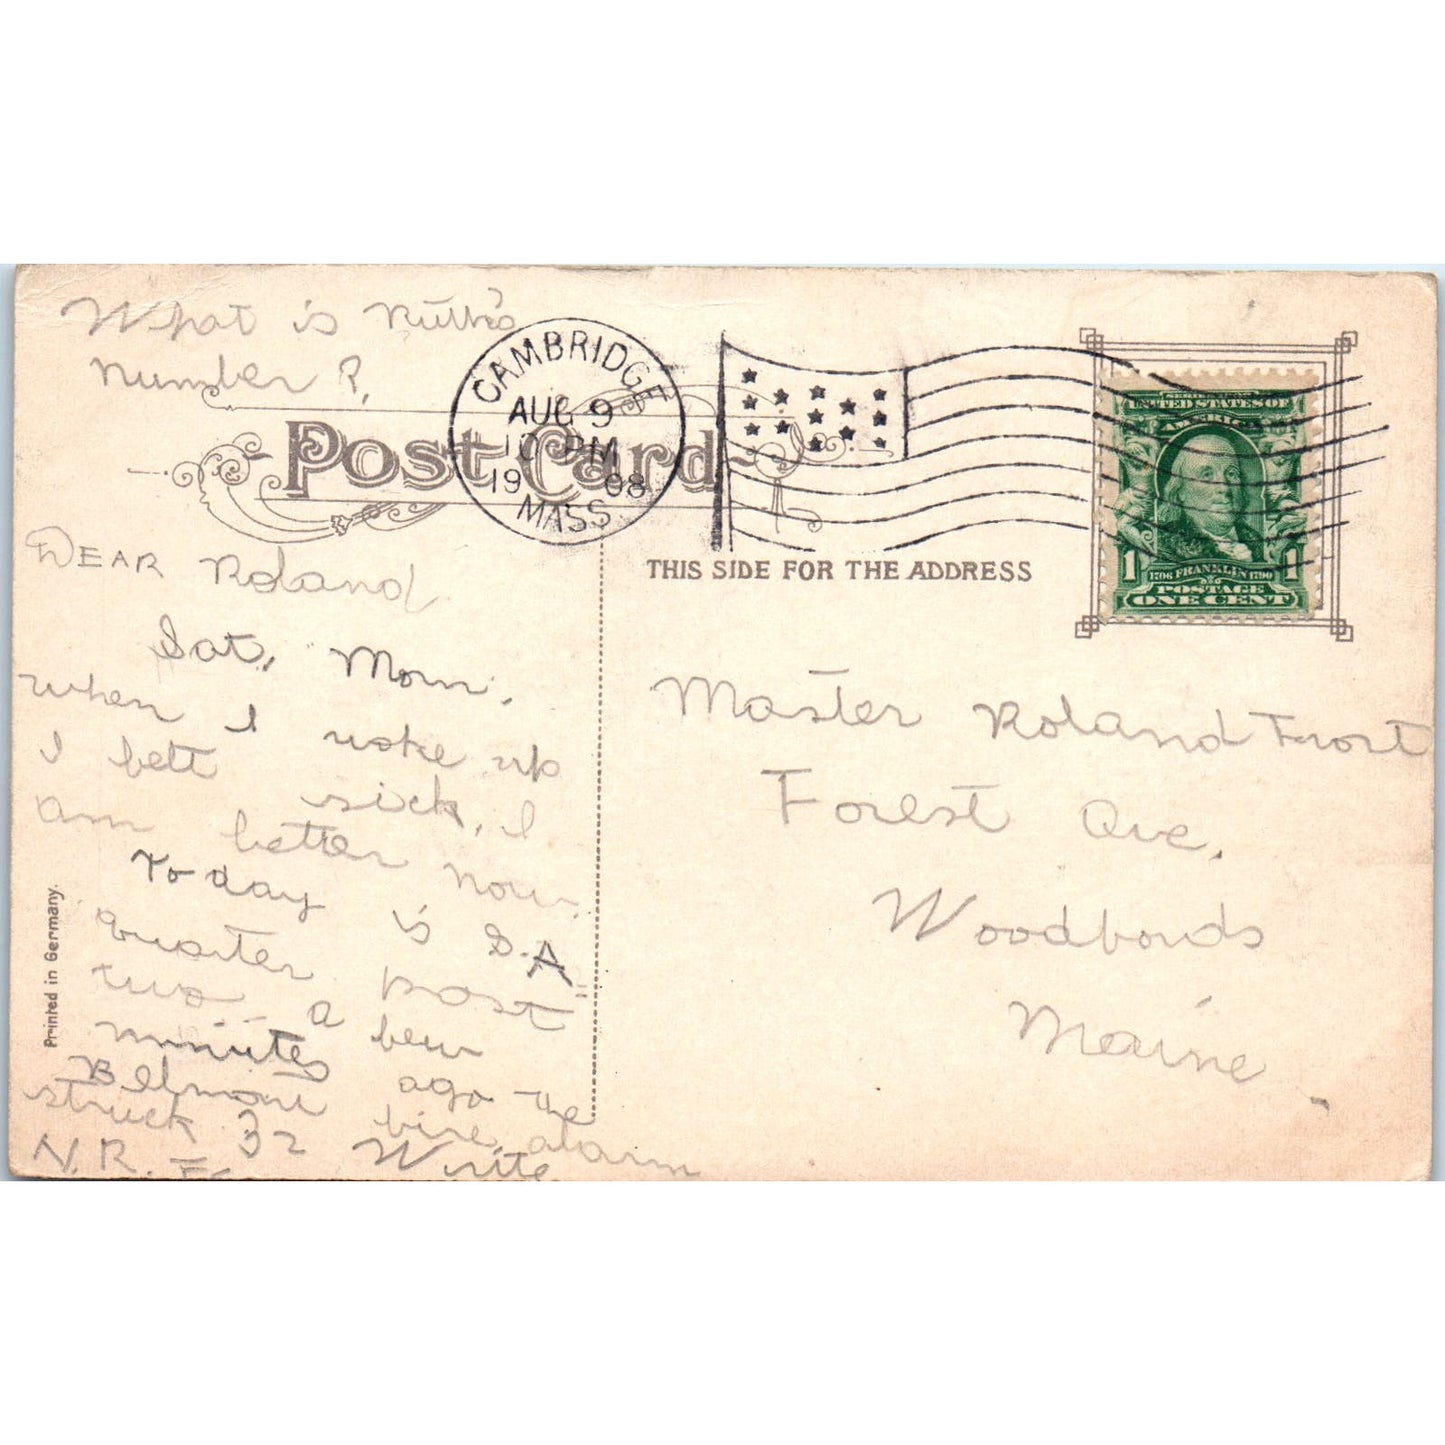 What is Ruth's
number?
CAMBRIDGE
AUG 9
10 PM
1908
MASS.
Post Card
THIS SIDE FOR THE ADDRESS
SERIES 1902
UNITED STATES OF
AMERICA
1 1706 FRANKLIN 1790 1
POSTAGE
ONE CENT
DEAR Roland
Sat. Morn.
when I woke up
I felt sick, I
am better now.
To day is S.A.
quarter past
two a few
minutes ago the
Belmont fire alarm
struck 32 Write
N.R.
Printed in Germany.
Master Roland Frost
Forest Ave.
Woodfords
Maine